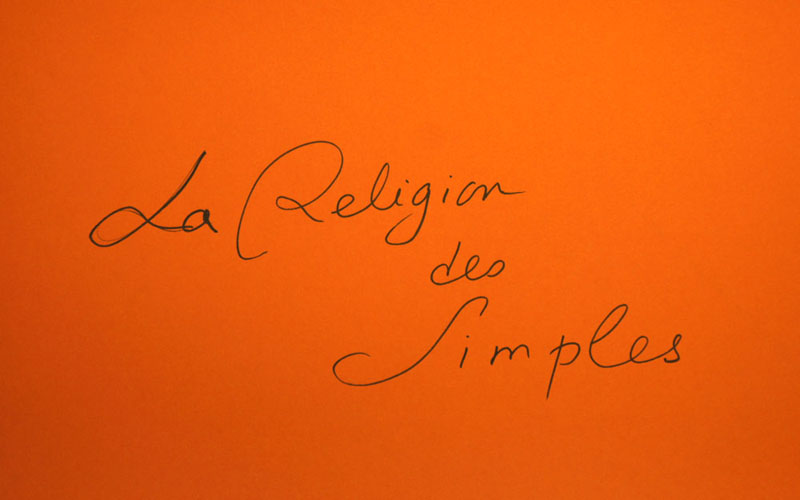 La Religion
des
Simples